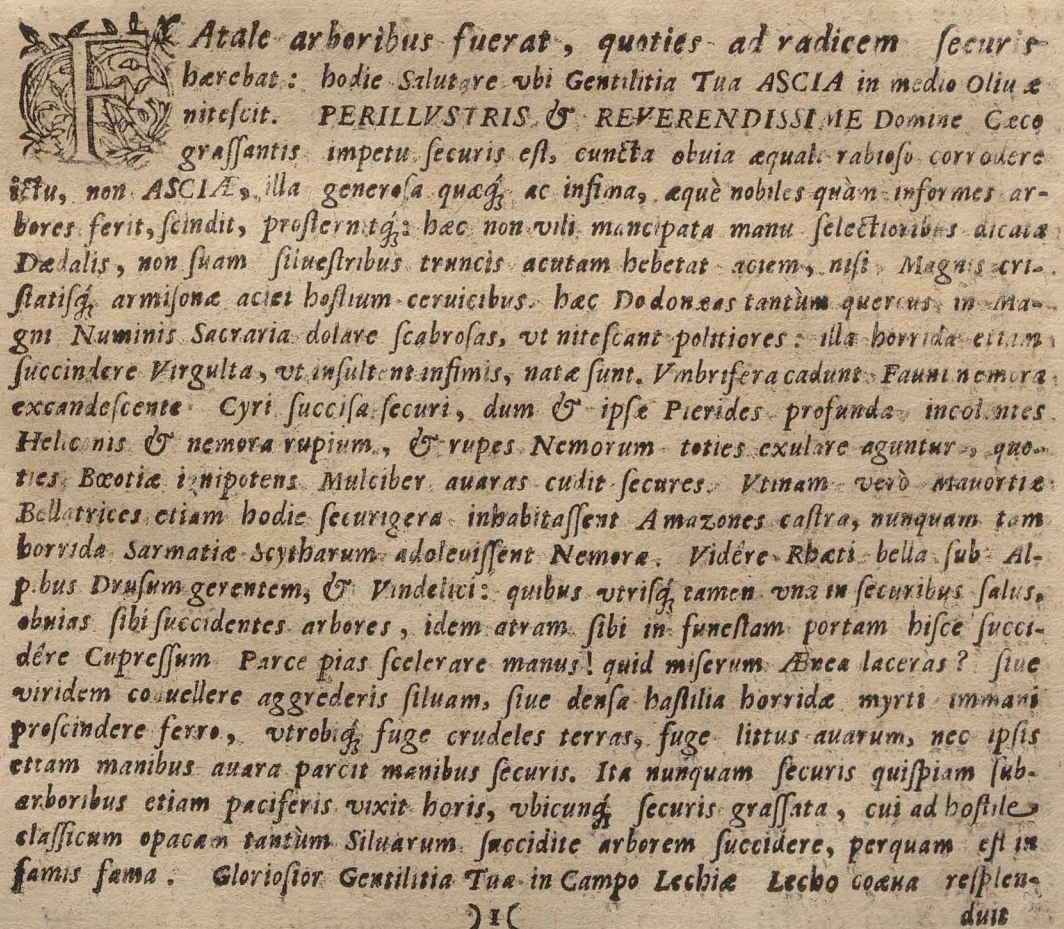 FAtale arboribus fuerat, quoties ad radicem ſecuris
hærebat: hodie Salutare vbi Gentilitia Tua ASCIA in medio Oliuæ
niteſcit. PERILLVSTRIS & REVERENDISSIME Domine Cæco
graſſantis impetu ſecuris eſt, cuncta obuia æquali rabioſo corrodere
ictu, non ASCIÆ, illa generoſa quæq́; ac infima, æquè nobiles quàm informes ar-
bores ferit, ſcindit, proſternitq́;: hæc non vili mancipata manu ſelectioribus dicata
Dædalis, non ſuam ſilueſtribus truncis acutam hebetat aciem, niſi Magnis cri-
ſtatiſq́; armiſonæ aciei hoſtium ceruicibus. hæc Dodonæas tantùm quercus in Ma-
gni Numinis Sacraria dolare ſcabroſas, vt niteſcant politiores: illa horrida etiam
ſuccindere Virgulta, vt inſultent infimis, natæ ſunt. Vmbrifera cadunt Fauni nemora
excandeſcente Cyri ſucciſa ſecuri, dum & ipſæ Pierides profunda incolentes
Heliconis & nemora rupium, & rupes Nemorum toties exulare aguntur, quo-
ties Bœotiæ ignipotens Mulciber auaras cudit ſecures. Vtinam verò Mauortiæ
Bellatrices etiam hodie ſecurigera inhabitaſſent Amazones caſtra, nunquam tam
horrida Sarmatiæ Scytharum adoleuiſſent Nemora. Vidêre Rhæti bella ſub Al-
pibus Druſum gerentem, & Vindelici: quibus vtriſq́; tamen vna in ſecuribus ſalus,
obuias ſibi ſuccidentes arbores, idem atram ſibi in funeſtam portam hiſce ſucci-
dêre Cupreſſum Parce pias ſcelerare manus! quid miſerum Ænea laceras? ſiue
viridem conuellere aggrederis ſiluam, ſiue denſa haſtilia horridæ myrti immani
proſcindere ferro, vtrobiq́; fuge crudeles terras, fuge littus auarum, nec ipſis
etiam manibus auara parcit manibus ſecuris. Ita nunquam ſecuris quiſpiam ſub
arboribus etiam paciferis vixit horis, vbicunq́; ſecuris graſſata, cui ad hoſtile
claſſicum opacam tantùm Siluarum ſuccidite arborem ſuccidere, perquam eſt in
famis fama. Glorioſior Gentilitia Tua in Campo Lechiæ Lecho coæua reſplen-
)1(
duit